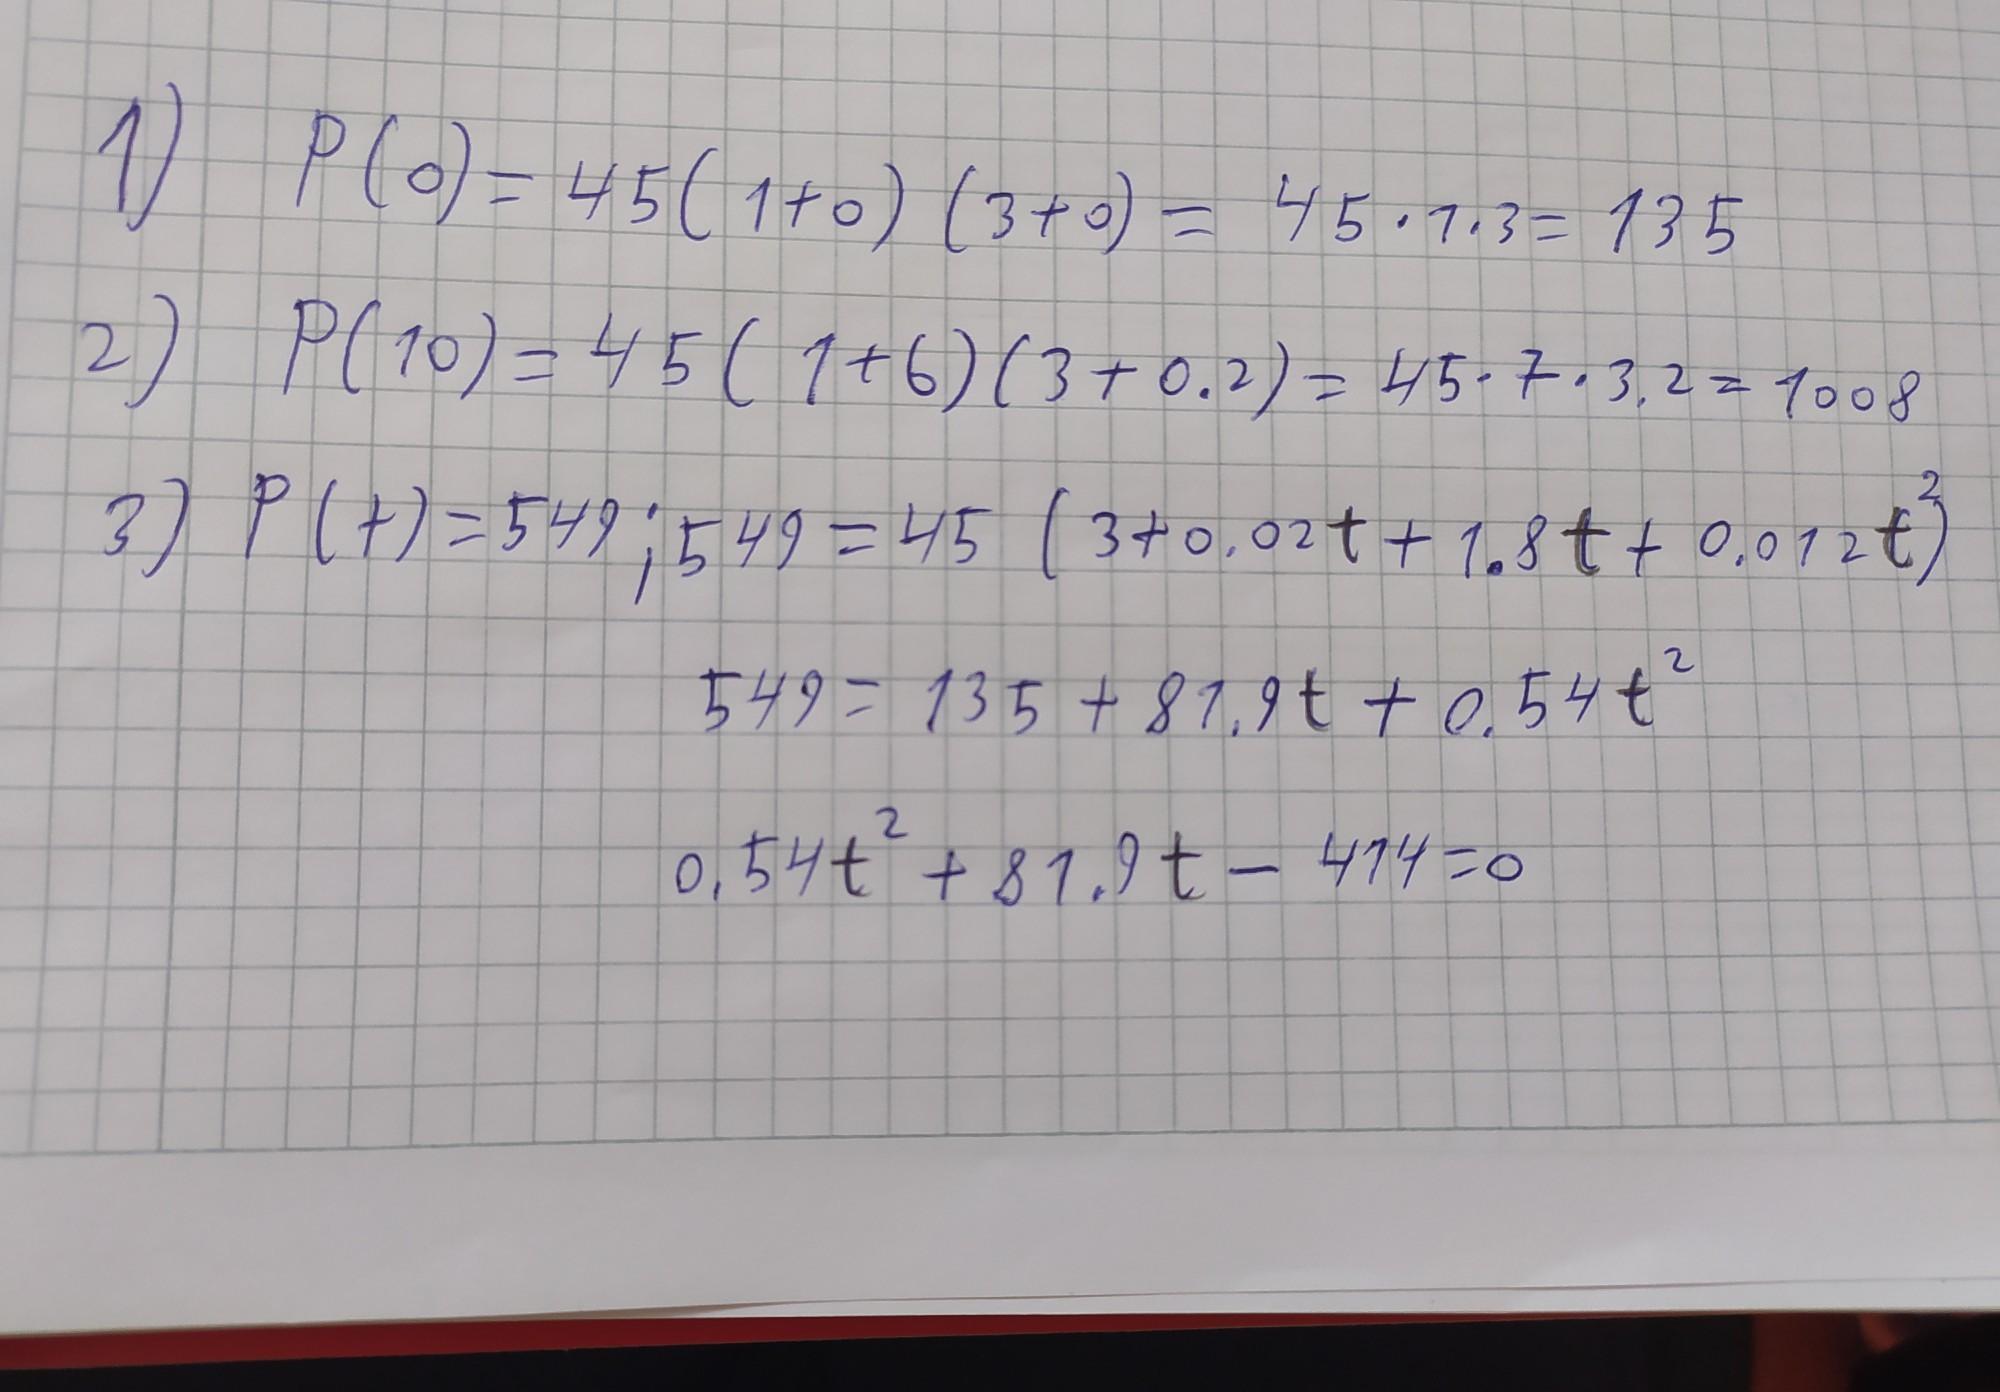 1) P(0) = 45(1+0)(3+0) = 45·1·3 = 135
2) P(10) = 45(1+6)(3+0.2) = 45·7·3.2 = 1008
3) P(t) = 549; 549 = 45(3+0.02t+1.8t+0.012t²)
549 = 135 + 81.9t + 0.54t²
0.54t² + 81.9t - 414 = 0